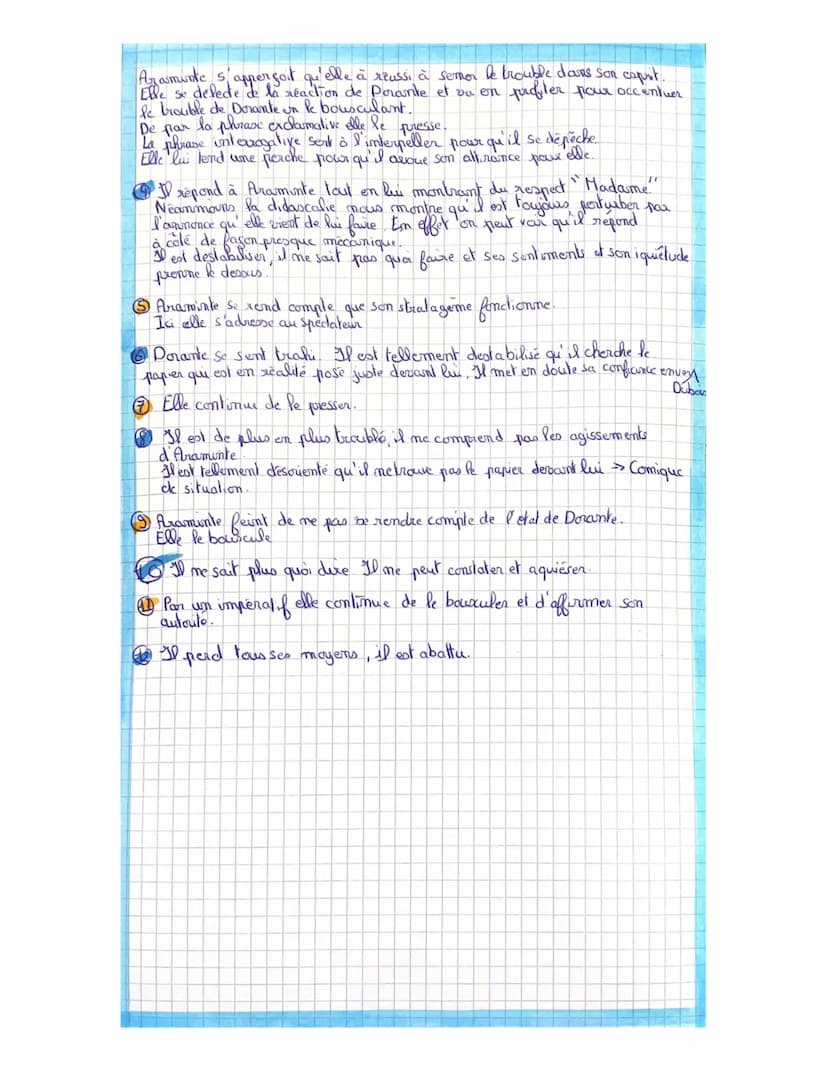 Araminte s'apperçoit qu'elle à réussi à semer le trouble dans son esprit.
Elle se délede de la réaction de Dorante et va en profiter pour accentuer
le trouble de Dorante en le bousculant.
De par la phrase exclamative elle le presse.
La phrase interrogative sert à l'interpeller pour qu'il se dépêche.
Elle lui tend une perche pour qu'il avoue son attirance pour elle.
④ Il répond à Araminte tout en lui montrant du respect "Madame"
Néanmoins la didascalie nous montre qu'il est toujours perturber par
l'annonce qu'elle vient de lui faire. En effet on peut voir qu'il répond
à côté de façon presque mécanique.
Il est destabiliser, il ne sait pas quoi faire et ses sentiments et son iquiétude
prenne le dessus.
⑤ Araminte se rend compte que son stratagème fonctionne.
Ici elle s'adresse au spectateur
⑥ Dorante se sent trahi. Il est tellement destabilisé qu'il cherche le
papier qui est en réalité posé juste devant lui. Il met en doute sa confiance envers
Dubois
⑦ Elle continue de le presser.
⑧ Il est de plus en plus troublé, il ne comprend pas les agissements
d'Araminte.
Il est tellement désorienté qu'il ne trouve pas le papier devant lui → Comique
de situation.
⑨ Araminte feint de ne pas se rendre compte de l'état de Dorante.
Elle le bouscule
⑩ Il ne sait plus quoi dire Il ne peut constater et aquiéser.
⑪ Par un impératif elle continue de le bousculer et d'affirmer son
autorité.
⑫ Il perd tous ses moyens, il est abattu.